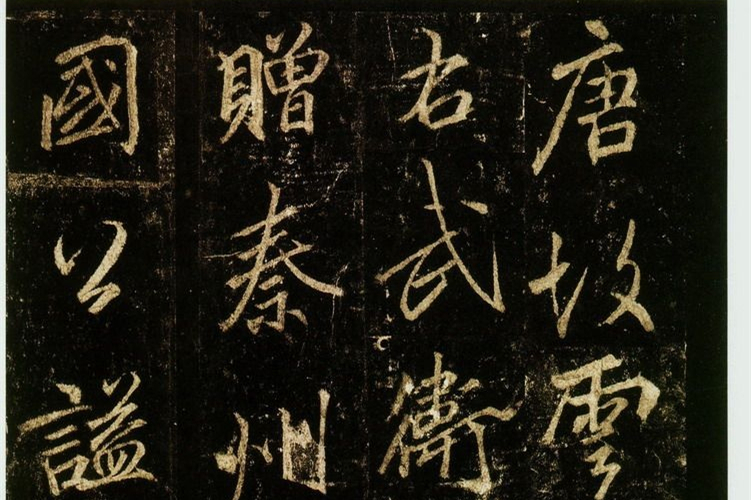 唐故雲
右武衛
贈秦州
國公謚